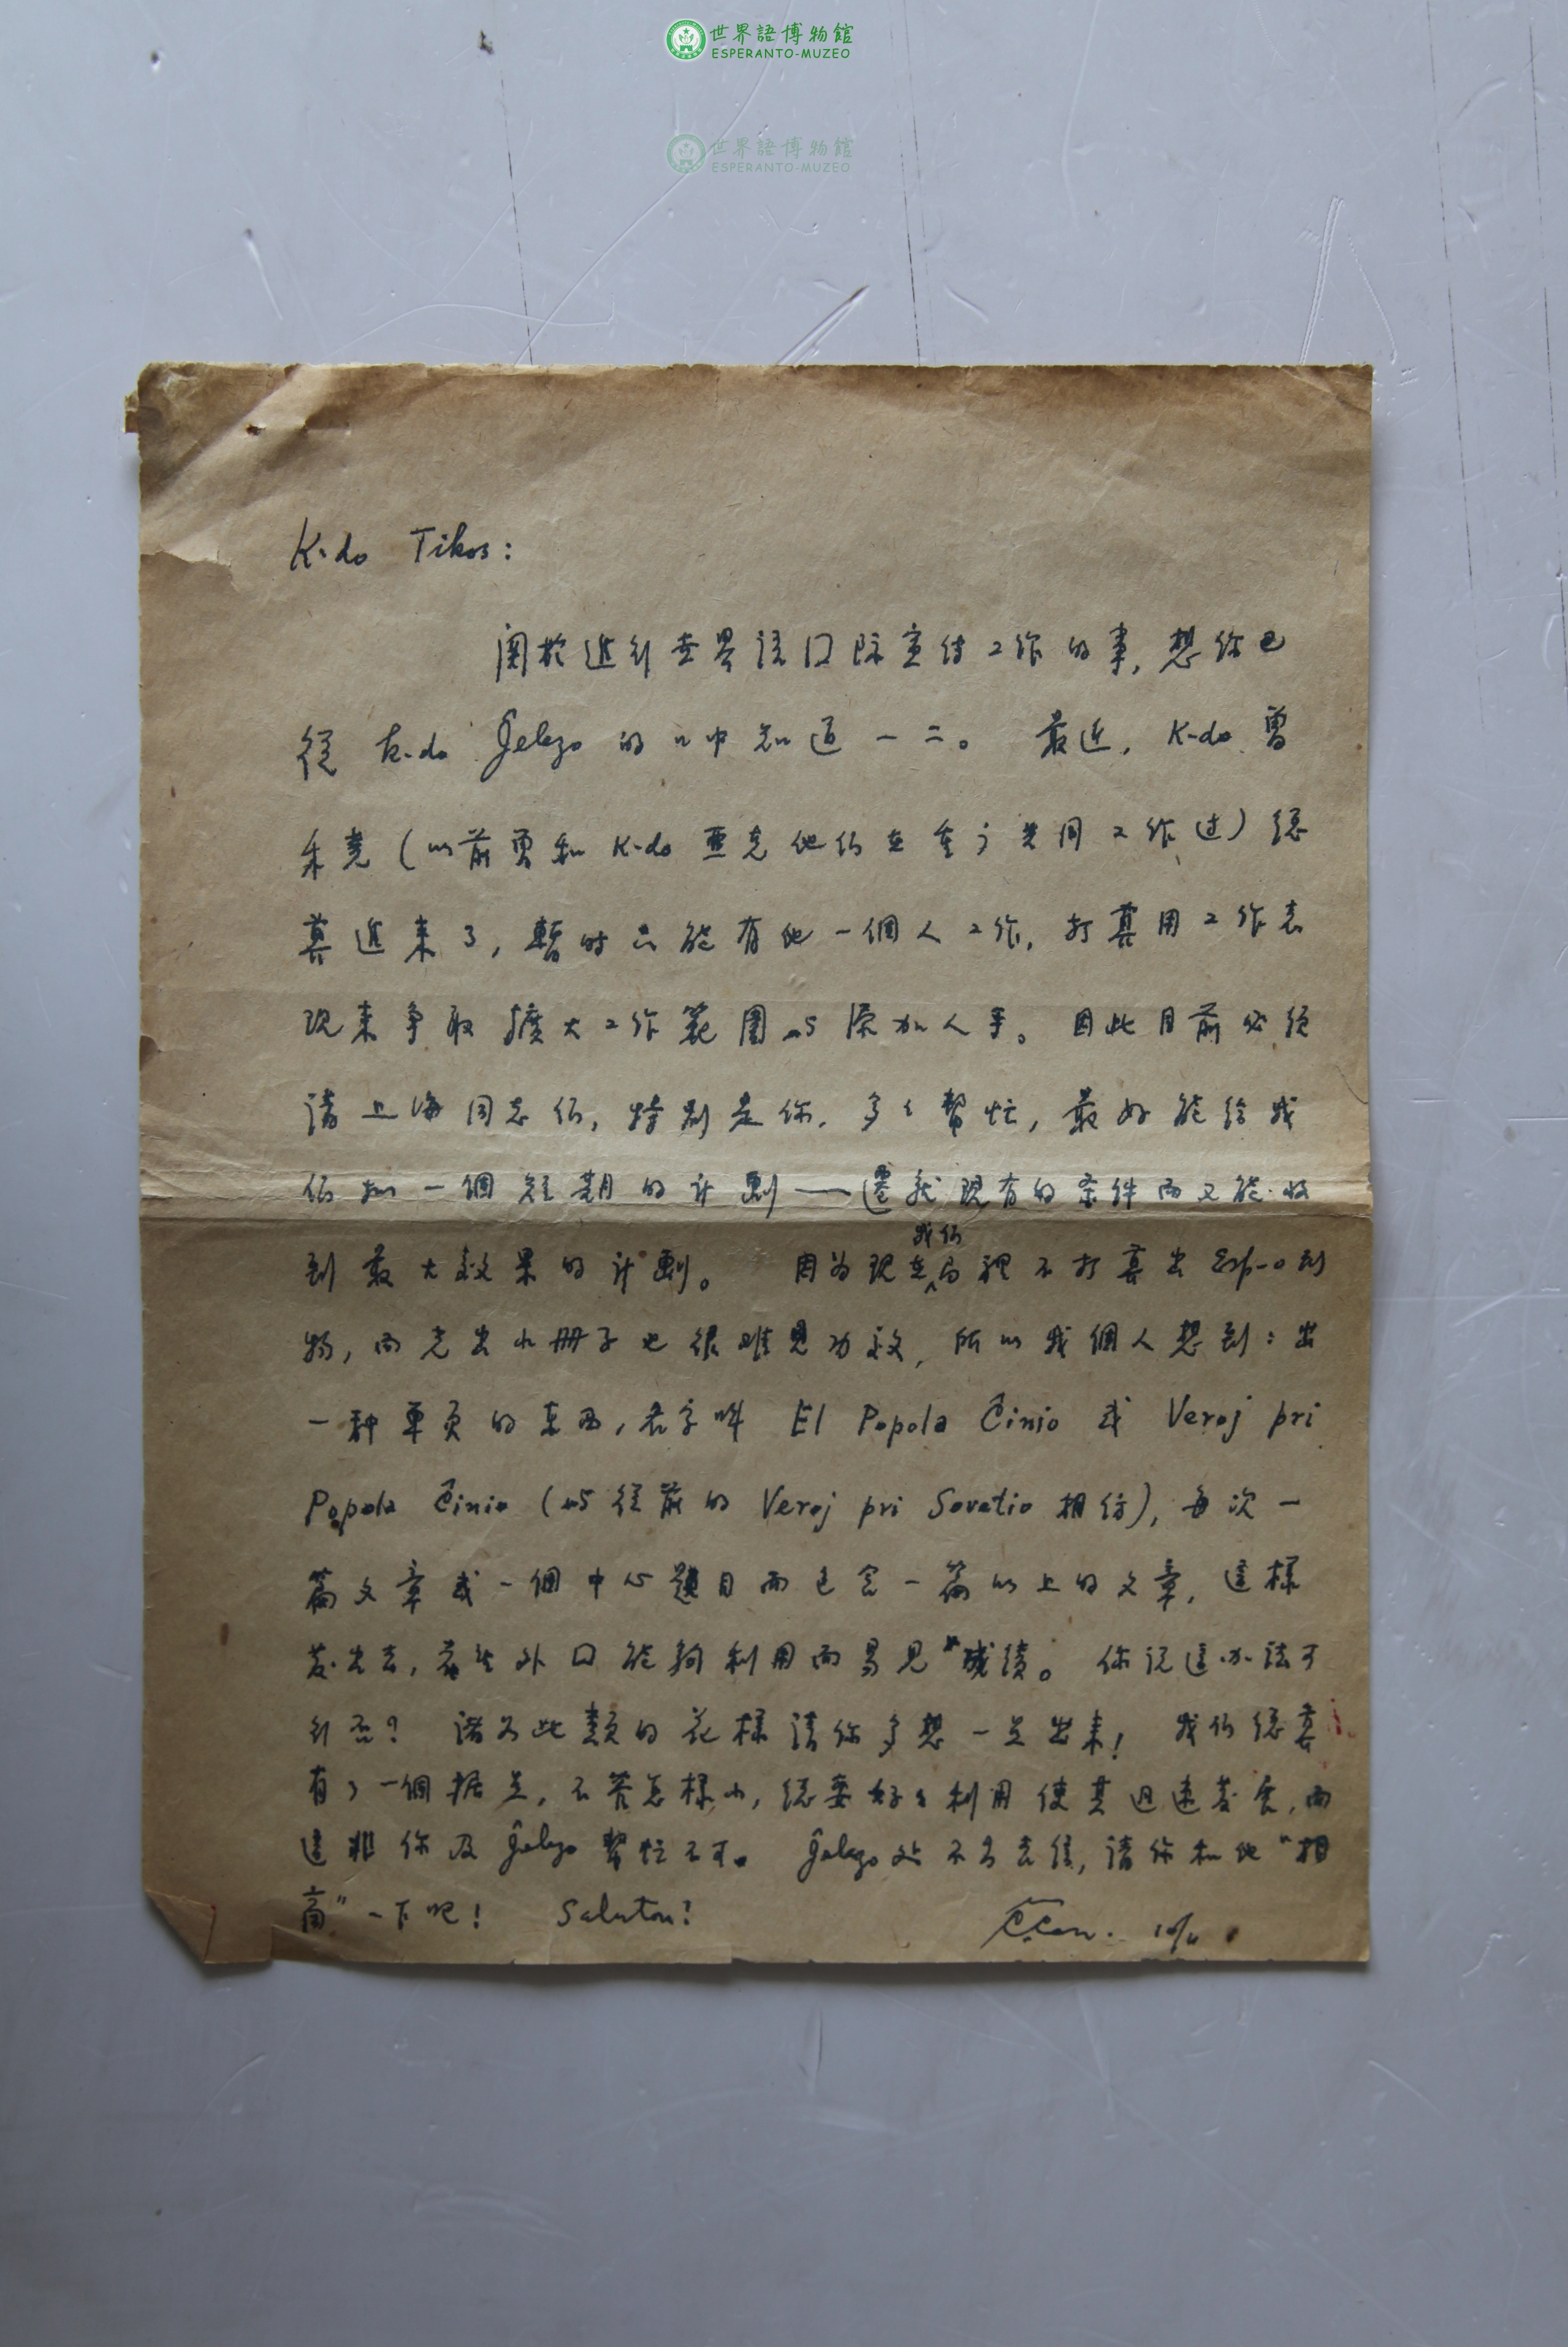 世界語博物館
ESPERANTO-MUZEO
世界語博物館
ESPERANTO-MUZEO
K-do Tikos:
關於進行世界語国际宣传工作的事,想你已
從 K-do Ĝelezo 的口中知道一二。 最近, K-do 曾
禾堯(以前曾和 K-do 亚克他们在重庆共同工作过)总
算進来了,暫时只能有他一個人工作,打算用工作表
现来争取擴大工作範圍与添加人手。因此目前必须
请上海同志们,特别是你,多多幫忙,最好能给我
们拟一個短期的计劃——遷就现有的条件而又能收
到最大效果的计劃。 因为现在我们局裡不打算出 Esp-o 刊
物,而光出小册子也很难見功效,所以我個人想到:出
一种单页的東西,名字叫 El Popola Ĉinio 或 Veroj pri
Popola Ĉinio (与從前的 Veroj pri Sovetio 相彷),每次一
篇文章或一個中心題目而包含一篇以上的文章,這樣
发出去,或能夠利用而易見"成績。你说這办法可
行否? 诸如此類的花樣请你多想一点出来! 我们总算
有了一個据点,不管怎樣小,总要好好利用使其迅速发展,而
這非你及 Ĝelezo 幫忙不可。 Ĝelezo 处不另去信,请你和他"相
商"一下吧! Saluton!